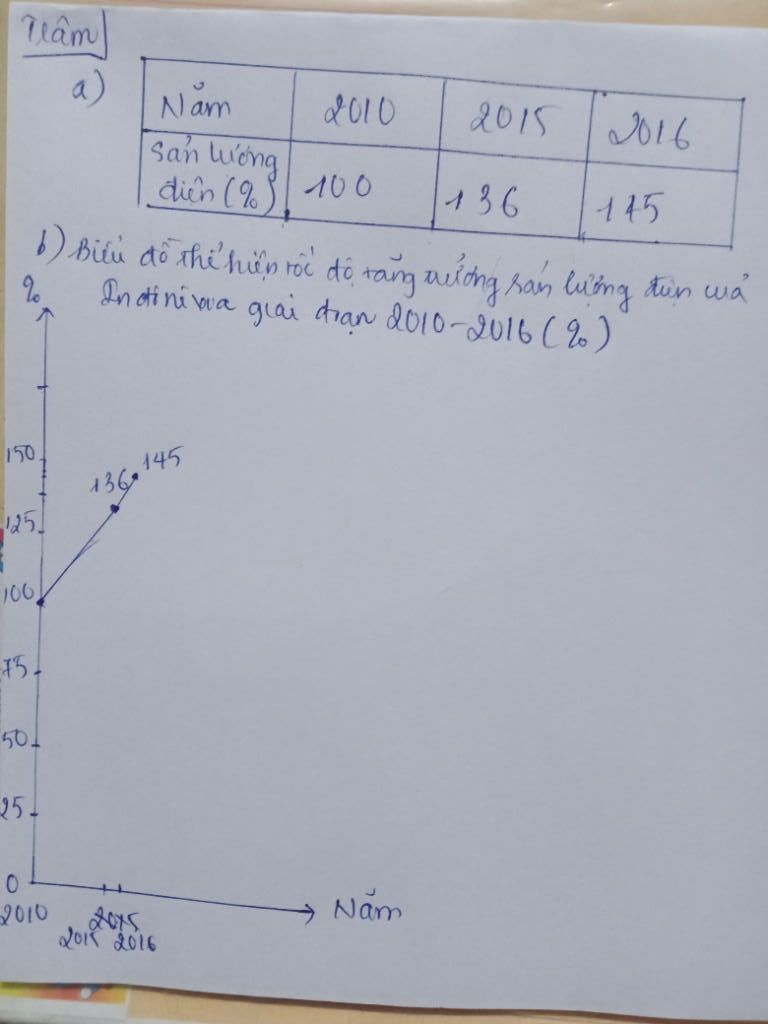 Trâm
a)
Năm 2010 2015 2016
Sản lượng điện (%) 100 136 145
b) Biểu đồ thể hiện tốc độ tăng trưởng sản lượng điện của
Inđônêxia giai đoạn 2010-2016 (%)
%
150
145
136
125
100
75
50
25
0
Năm
2010
2015
2015 2016